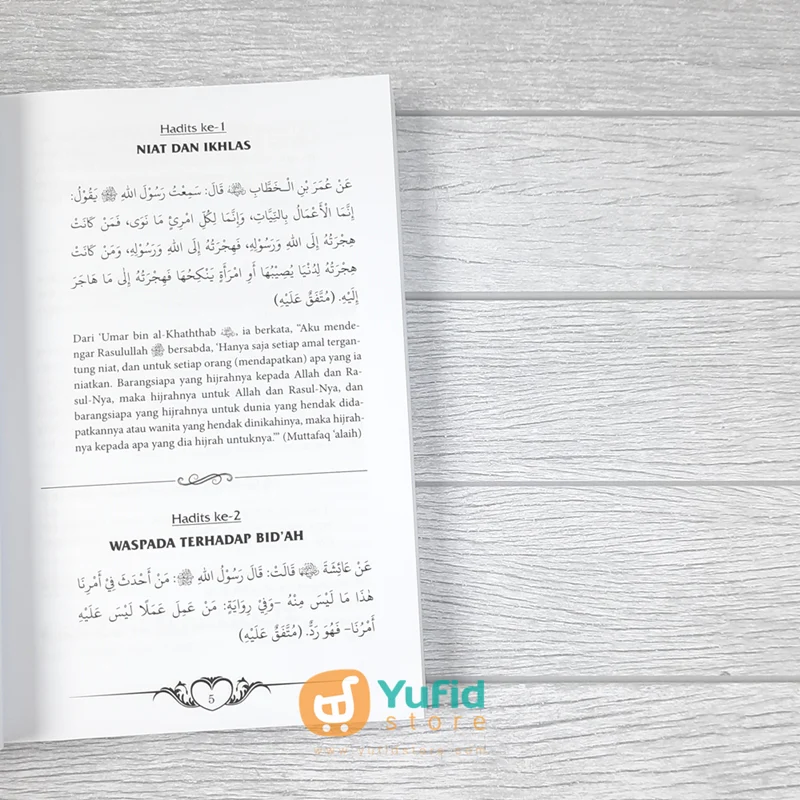 Hadits ke-1
NIAT DAN IKHLAS
عَنْ عُمَرَ بْنِ الْـخَطَّابِ ﷺ قَالَ: سَمِعْتُ رَسُوْلَ اللهِ ﷺ يَقُوْلُ:
إِنَّمَا الْأَعْمَالُ بِالنِّيَّاتِ، وَإِنَّمَا لِكُلِّ امْرِئٍ مَا نَوَى، فَمَنْ كَانَتْ
هِجْرَتُهُ إِلَى اللهِ وَرَسُوْلِهِ، فَهِجْرَتُهُ إِلَى اللهِ وَرَسُوْلِهِ، وَمَنْ كَانَتْ
هِجْرَتُهُ لِدُنْيَا يُصِيْبُهَا أَوِ امْرَأَةٍ يَنْكِحُهَا فَهِجْرَتُهُ إِلٰى مَا هَاجَرَ
إِلَيْهِ. (مُتَّفَقٌ عَلَيْهِ)
Dari 'Umar bin al-Khaththab , ia berkata, "Aku mende-
ngar Rasulullah ﷺ bersabda, 'Hanya saja setiap amal tergan-
tung niat, dan untuk setiap orang (mendapatkan) apa yang ia
niatkan. Barangsiapa yang hijrahnya kepada Allah dan Ra-
sul-Nya, maka hijrahnya untuk Allah dan Rasul-Nya, dan
barangsiapa yang hijrahnya untuk dunia yang hendak dida-
patkannya atau wanita yang hendak dinikahinya, maka hijrah-
nya kepada apa yang dia hijrah untuknya.'" (Muttafaq 'alaih)
Hadits ke-2
WASPADA TERHADAP BID'AH
عَنْ عَائِشَةَ قَالَتْ: قَالَ رَسُوْلُ اللهِ ﷺ: مَنْ أَحْدَثَ فِيْ أَمْرِنَا
هٰذَا مَا لَيْسَ مِنْهُ -وَفِيْ رِوَايَةٍ: مَنْ عَمِلَ عَمَلًا لَيْسَ عَلَيْهِ
أَمْرُنَا- فَهُوَ رَدٌّ. (مُتَّفَقٌ عَلَيْهِ)
5
Yufid
store